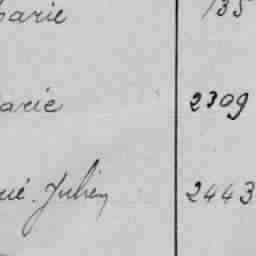 arie 135
arie 2309
ué. Julien 2443